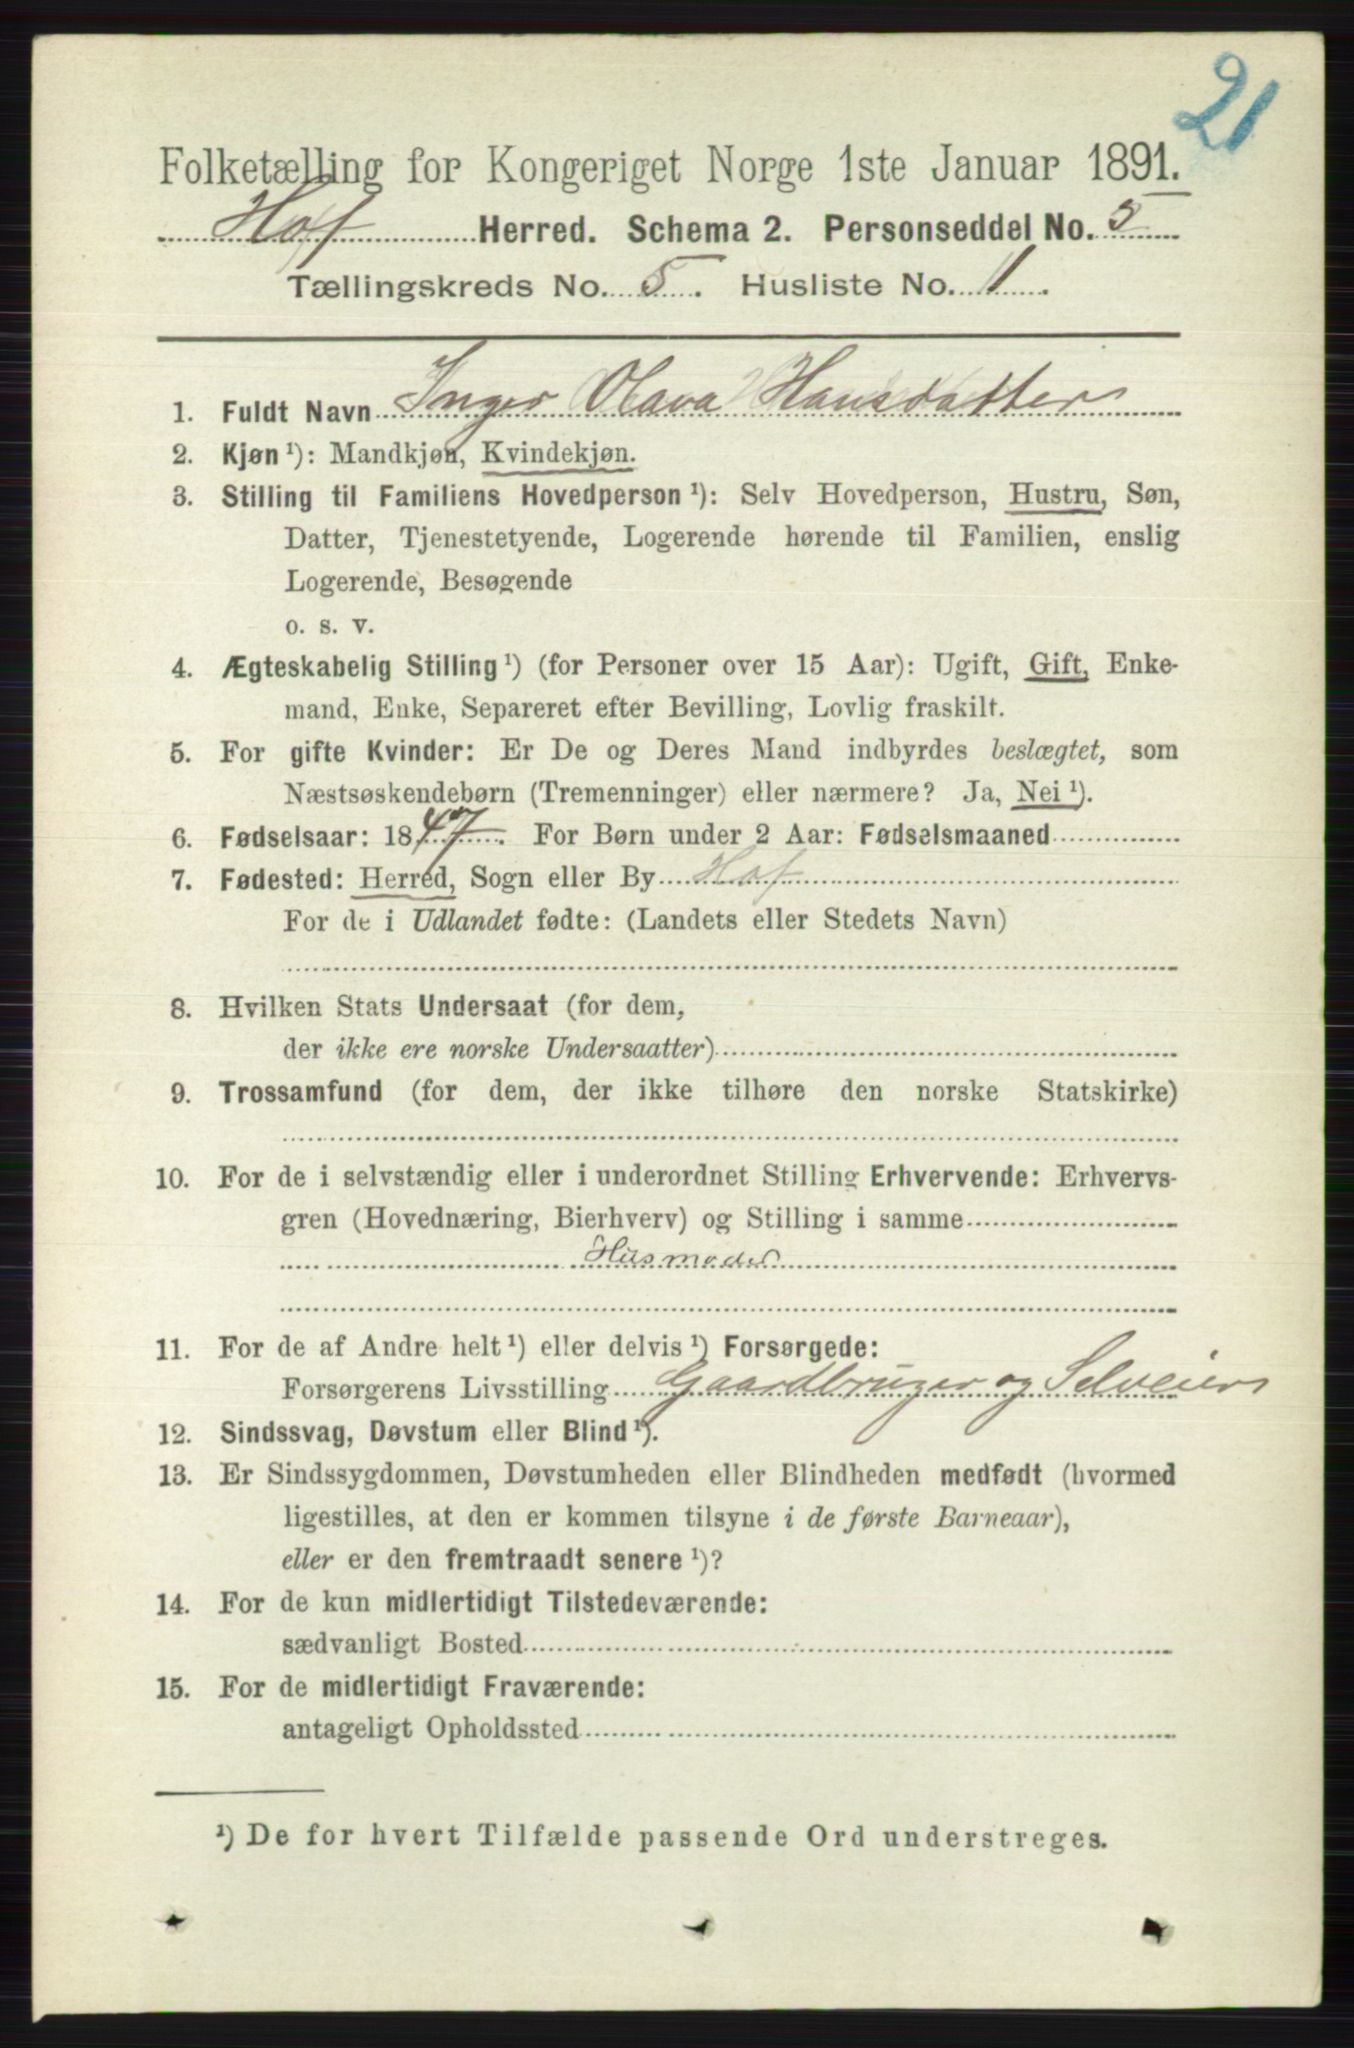 21
Folketælling for Kongeriget Norge 1ste Januar 1891.
Hof Herred. Schema 2. Personseddel No. 5
Tællingskreds No. 5. Husliste No. 1.
1. Fuldt Navn Inger Olava Hansdatter
2. Kjøn ¹): Mandkjøn, Kvindekjøn.
3. Stilling til Familiens Hovedperson ¹): Selv Hovedperson, Hustru, Søn,
Datter, Tjenestetyende, Logerende hørende til Familien, enslig
Logerende, Besøgende
o. s. v.
4. Ægteskabelig Stilling ¹) (for Personer over 15 Aar): Ugift, Gift, Enke-
mand, Enke, Separeret efter Bevilling, Lovlig fraskilt.
5. For gifte Kvinder: Er De og Deres Mand indbyrdes beslægtet, som
Næstsøskendebørn (Tremenninger) eller nærmere? Ja, Nei ¹).
6. Fødselsaar: 1847. For Børn under 2 Aar: Fødselsmaaned
7. Fødested: Herred, Sogn eller By Hof
For de i Udlandet fødte: (Landets eller Stedets Navn)
8. Hvilken Stats Undersaat (for dem,
der ikke ere norske Undersaatter)
9. Trossamfund (for dem, der ikke tilhøre den norske Statskirke)
10. For de i selvstændig eller i underordnet Stilling Erhvervende: Erhvervs-
gren (Hovednæring, Bierhverv) og Stilling i samme
Husmoder
11. For de af Andre helt ¹) eller delvis ¹) Forsørgede:
Forsørgerens Livsstilling Gaardbruger og Selveier
12. Sindssvag, Døvstum eller Blind ¹).
13. Er Sindssygdommen, Døvstumheden eller Blindheden medfødt (hvormed
ligestilles, at den er kommen tilsyne i de første Barneaar),
eller er den fremtraadt senere ¹)?
14. For de kun midlertidigt Tilstedeværende:
sædvanligt Bosted
15. For de midlertidigt Fraværende:
antageligt Opholdssted
¹) De for hvert Tilfælde passende Ord understreges.